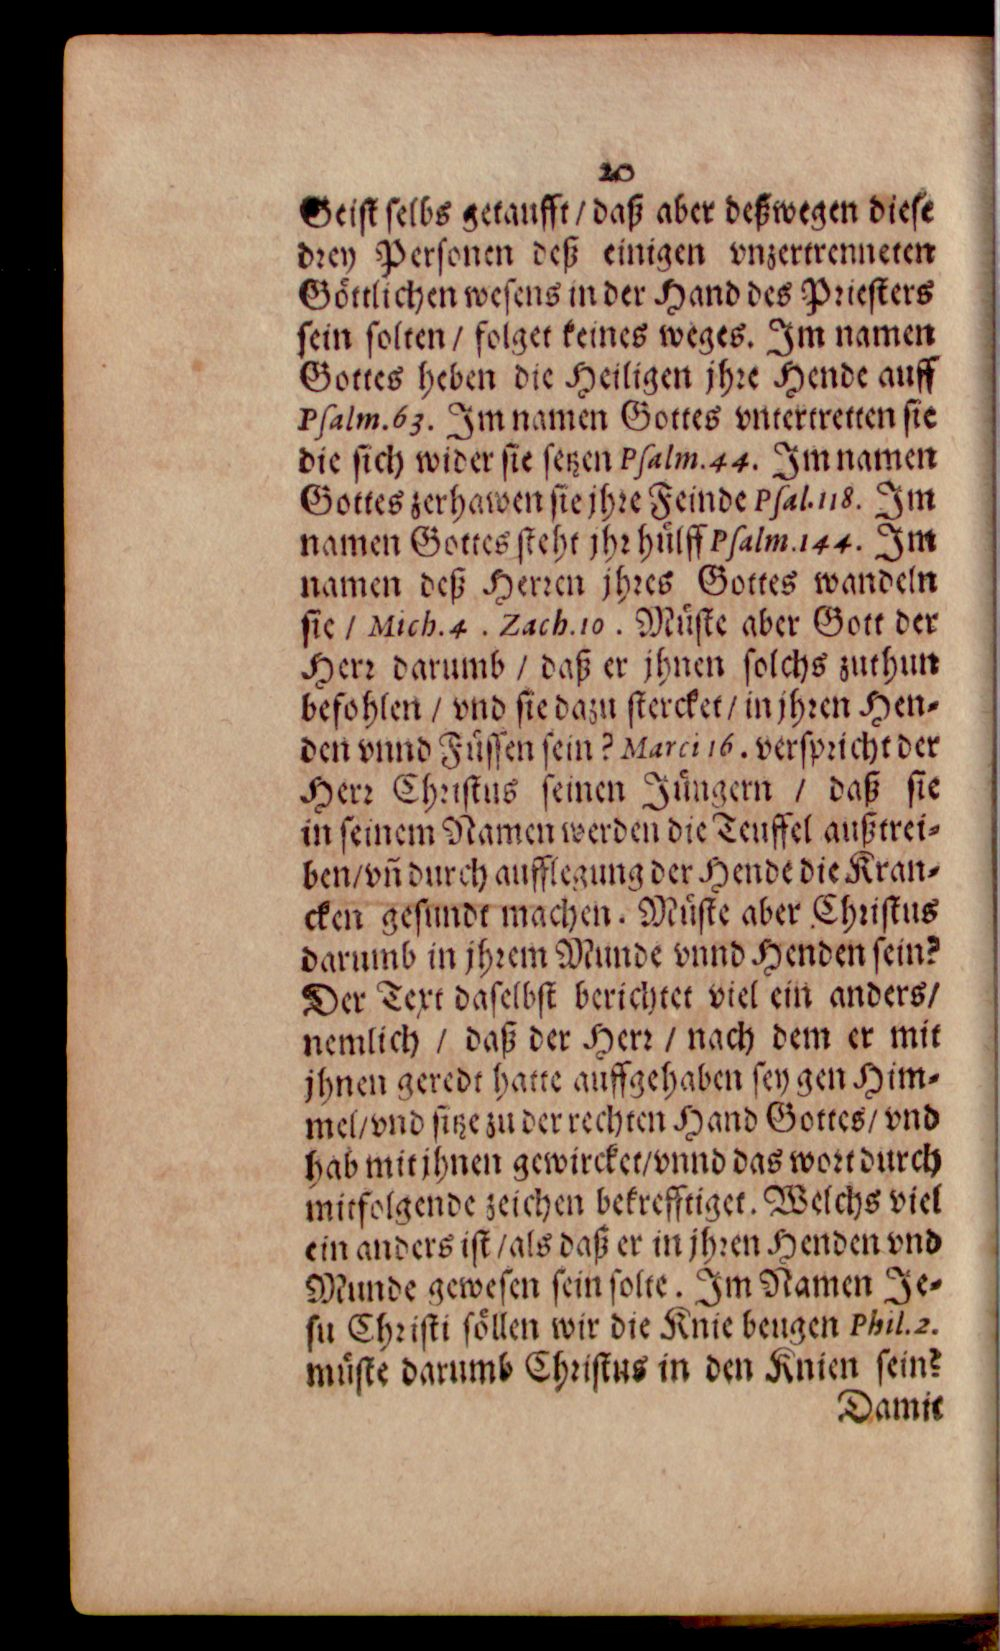 20
Geist selbs getaufft / daß aber deßwegen diese
drey Personen deß einigen vnzertrenneten
Göttlichen wesens in der Hand des Priesters
sein solten / folget keines weges. Im namen
Gottes heben die Heiligen jhre Hende auff
Psalm.63. Im namen Gottes vntertretten sie
die sich wider sie setzen Psalm.44. Im namen
Gottes zerhawen sie jhre Feinde Psal.118. Im
namen Gottes steht jhr hülff Psalm.144. Im
namen deß Herren jhres Gottes wandeln
sie / Mich.4 . Zach.10 . Müste aber Gott der
Herr darumb / daß er jhnen solchs zuthun
befohlen / vnd sie dazu stercket / in jhren Hen-
den vnnd Füssen sein? Marci 16 . verspricht der
Herr Christus seinen Jüngern / daß sie
in seinem Namen werden die Teuffel außtrei-
ben/vñ durch aufflegung der Hende die Kran-
cken gesundt machen. Müste aber Christus
darumb in jhrem Munde vnnd Henden sein?
Der Text daselbst berichtet viel ein anders/
nemlich / daß der Herr / nach dem er mit
jhnen geredt hatte auffgehaben sey gen Him-
mel/vnd sitze zu der rechten Hand Gottes/ vnd
hab mit jhnen gewircket/vnnd das wort durch
mitfolgende zeichen bekrefftiget. Welchs viel
ein anders ist / als daß er in jhren Henden vnd
Munde gewesen sein solte. Im Namen Je-
su Christi söllen wir die Knie beugen Phil.2.
müste darumb Christus in den Knien sein?
Damit